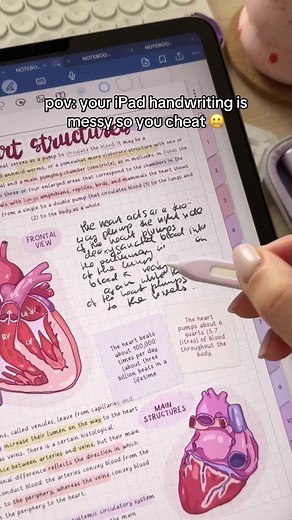 NOTEBOOK... NOTEBOO... NOTEBOO...
pov: your iPad handwriting is
messy so you cheat 🙂
art structures
mal serves as a pump to circulate the blood. It may be a
annelid worms, or a somewhat more elaborate structure with one or
and a main pumping chamber (ventricle), as in mollusks. In fishes the
three or four enlarged areas that correspond to the chambers in the
mals with lungs amphibians, reptiles, birds, and mammals the heart shows
from a single to a double pump that circulates blood (1) to the lungs and
(2) to the body as a whole.
FRONTAL
VIEW
the heart acts as a two-
way plump. the right side
of the heart pumps
blood into
the pulmonary
of the lungs
blood
again while the
of the heart pumps
to the
The heart beats
about 100,000
times per day
(about three
billion beats in a
lifetime
The heart
pumps about 6
quarts (5.7
litres) of blood
throughout the
body.
ns, called venules, leave from capillaries and
increase their lumen on the way to the heart
veins. There is a certain histological
between arteries and veins, but their main
ional difference reflects the direction in which
conduct blood: the arteries convey blood from the
to the periphery, whereas the veins convey blood
the periphery to the heart.
systemic circulatory system
the main
MAIN
STRUCTURES